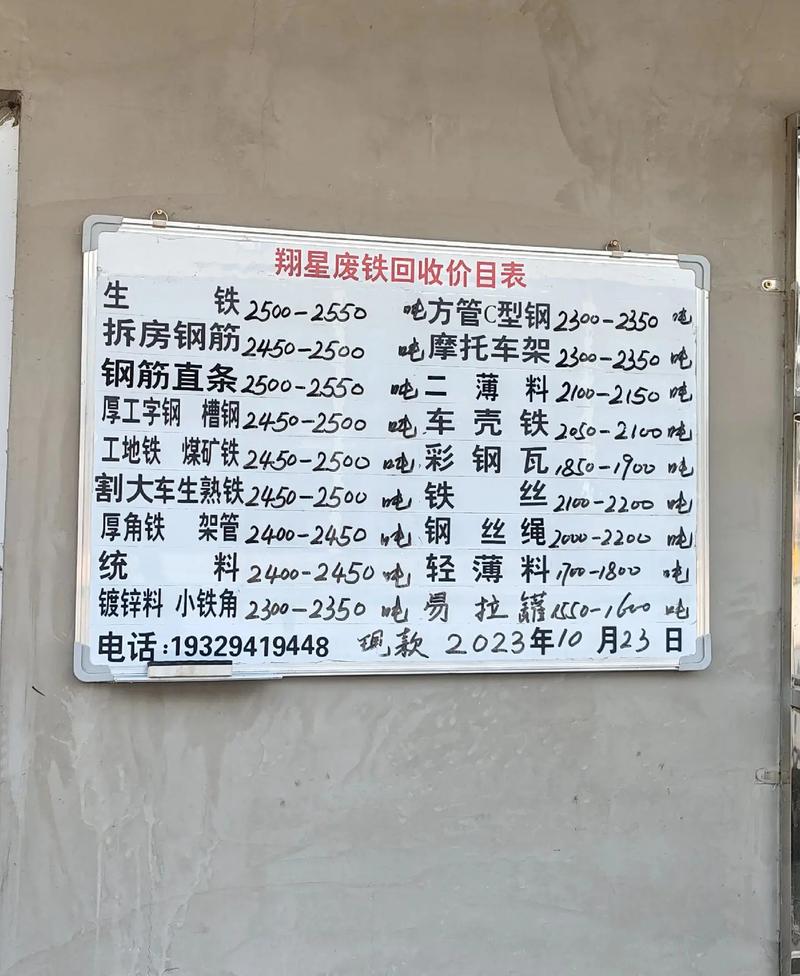 翔星废铁回收价目表
生 铁 2500-2550 吨 方管C型钢 2300-2350 吨
拆房钢筋 2450-2500 吨 摩托车架 2300-2350 吨
钢筋直条 2500-2550 吨 二薄料 2100-2150 吨
厚工字钢 槽钢 2450-2500 吨 车壳铁 2050-2100 吨
工地铁 煤矿铁 2450-2500 吨 彩钢瓦 1850-1900 吨
割大车生熟铁 2450-2500 吨 铁 丝 2100-2200 吨
厚角铁 架管 2400-2450 吨 钢丝绳 2000-2200 吨
统 料 2400-2450 吨 轻薄料 1700-1800 吨
镀锌料 小铁角 2300-2350 吨 易拉罐 1550-1600 吨
电话:19329419448 现款 2023年10月23日